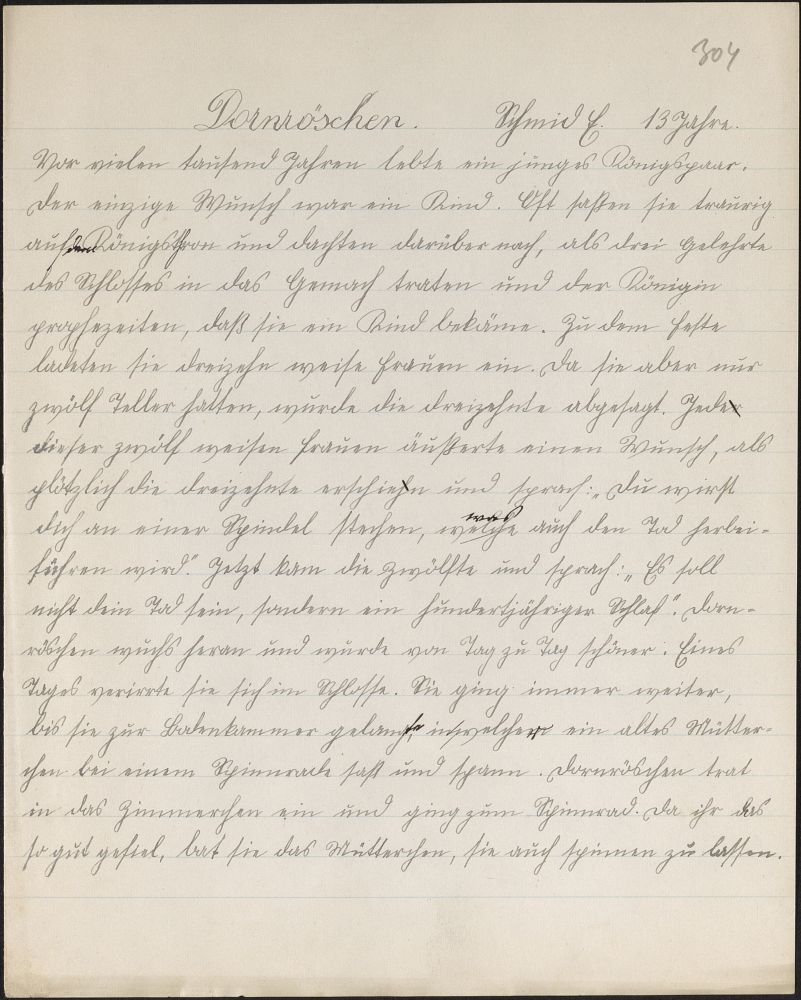 304
Dornröschen. Schmid E. 13 Jahre.
Vor vielen tausend Jahren lebte ein junges Königspaar.
Der einzige Wunsch war ein Kind. Oft saßen sie traurig
auf dem Königsthron und dachten darüber nach, als drei Gelehrte
des Schlosses in das Gemach traten und der Königin
prophezeiten, daß sie ein Kind bekäme. Zu dem Feste
ladeten sie dreizehn weise Frauen ein. Da sie aber nur
zwölf Teller hatten, wurde die dreizehnte abgesagt. Jede
dieser zwölf weisen Frauen äußerte einen Wunsch, als
plötzlich die dreizehnte erschien und sprach: „Du wirst
dich an einer Spindel stechen, was welche auch den Tod herbei-
führen wird." Jetzt kam die zwölfte und sprach: „Es soll
nicht dein Tod sein, sondern ein hundertjähriger Schlaf". Dorn-
röschen wuchs heran und wurde von Tag zu Tag schöner. Eines
Tages verirrte sie sich im Schlosse. Sie ging immer weiter,
bis sie zur Bodenkammer gelangte, in welcher ein altes Mütter-
chen bei einem Spinnrade saß und spann. Dornröschen trat
in das Zimmerchen ein und ging zum Spinnrad. Da ihr das
so gut gefiel, bat sie das Mütterchen, sie auch spinnen zu lassen.